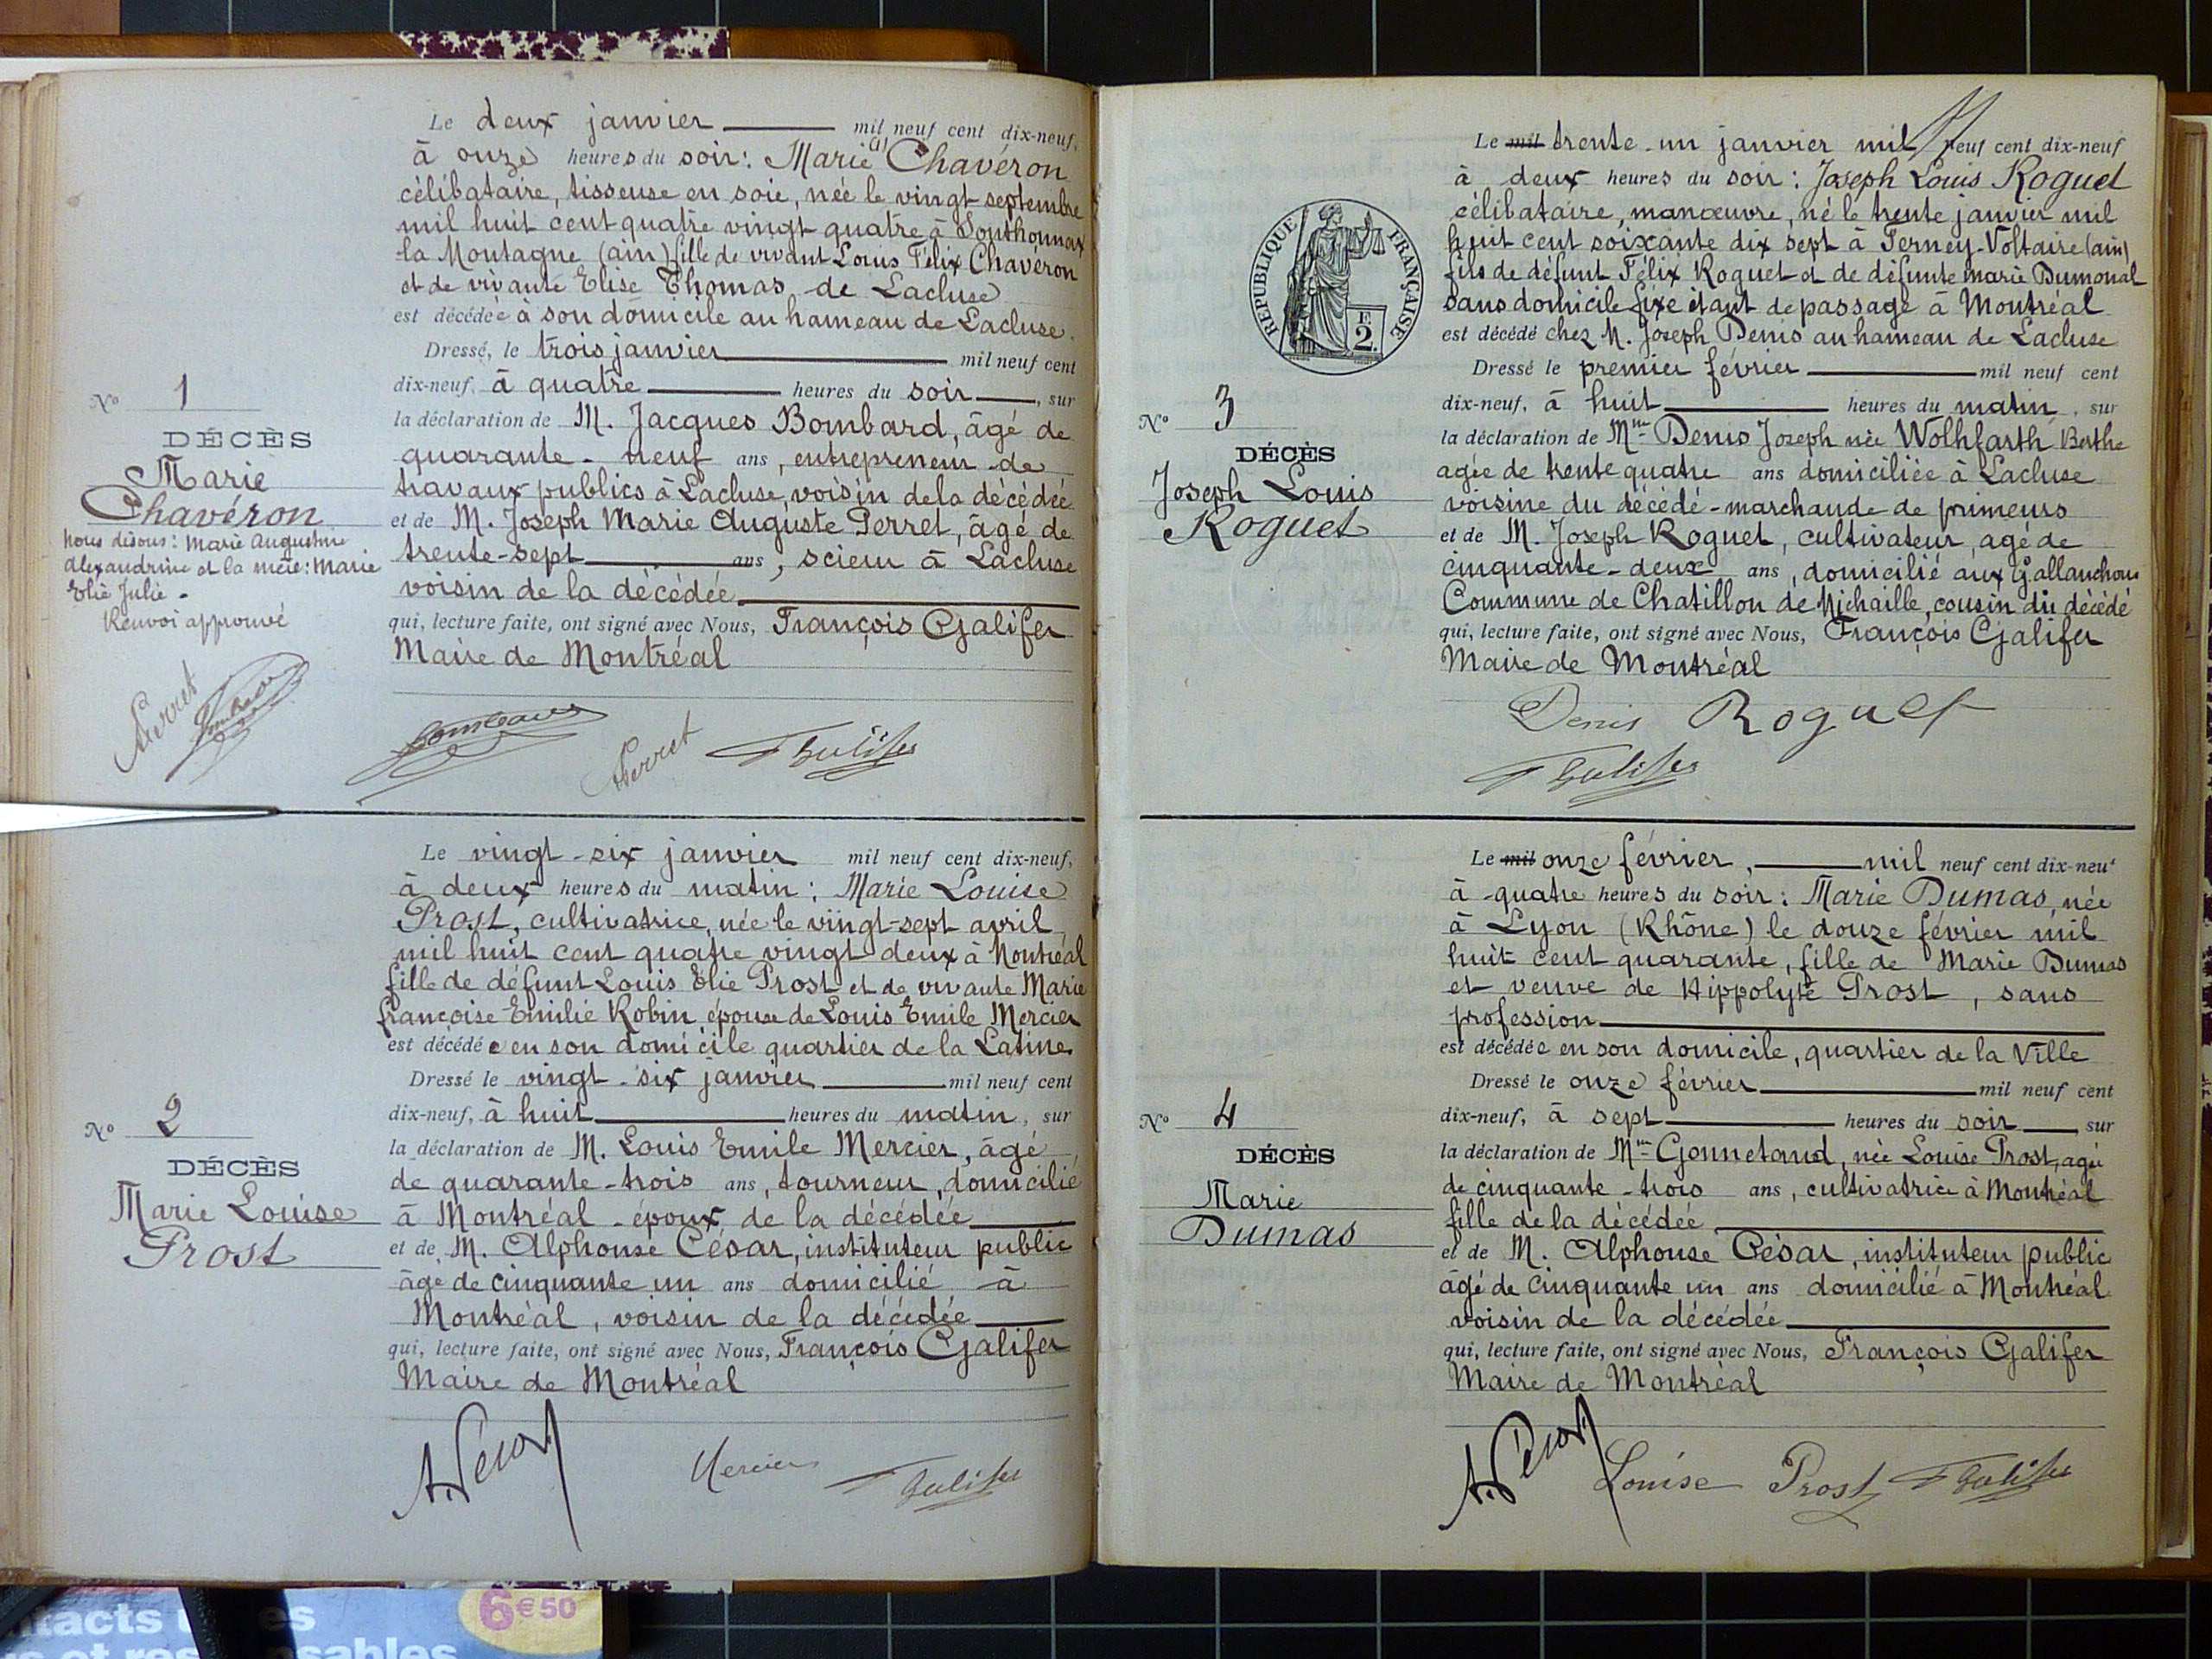 Le deux janvier mil neuf cent dix-neuf,
à onze heures du soir : Marie (1) Chavéron
célibataire, tisseuse en soie, née le vingt septembre
mil huit cent quatre vingt quatre à Sonthonnax
la Montagne (ain) fille de vivant Louis Félix Chavéron
et de vivante Elise Thomas, de Lacluse
est décédée à son domicile au hameau de Lacluse.
Dressé, le trois janvier mil neuf cent
dix-neuf, à quatre heures du soir, sur
la déclaration de M. Jacques Bombard, âgé de
quarante-neuf ans, entrepreneur de
travaux publics à Lacluse, voisin de la décédée
et de M. Joseph Marie Auguste Perret, âgé de
trente-sept ans, scieur à Lacluse
voisin de la décédée
qui, lecture faite, ont signé avec Nous, François Galifer
Maire de Montréal
N° 1
DÉCÈS
Marie
Chavéron
nous disons : Marie Augustine
Alexandrine et la mère : Marie
Elie Julie -
Renvoi approuvé
Perret
Bombard
Perret
F Galifer
Le vingt-six janvier mil neuf cent dix-neuf,
à deux heures du matin : Marie Louise
Prost, cultivatrice, née le vingt-sept avril
mil huit cent quatre vingt deux à Montréal
fille de défunt Louis Elie Prost et de vivante Marie
françoise Emilie Robin épouse de Louis Emile Mercier
est décédée en son domicile quartier de la Latine
Dressé le vingt-six janvier mil neuf cent
dix-neuf, à huit heures du matin, sur
la déclaration de M. Louis Emile Mercier, âgé
de quarante-trois ans, tourneur, domicilié
à Montréal - époux de la décédée
et de M. Alphonse César, instituteur public
âgé de cinquante un ans domicilié à
Montréal, voisin de la décédée
qui, lecture faite, ont signé avec Nous, François Galifer
Maire de Montréal
N° 2
DÉCÈS
Marie Louise
Prost
A. César Mercier F Galifer
Le mil trente-un janvier mil neuf cent dix-neuf
à deux heures du soir : Joseph Louis Roguet
célibataire, manœuvre, né le trente janvier mil
huit cent soixante dix sept à Ferney-Voltaire (ain)
fils de défunt Félix Roguet et de défunte Marie Dumonal
sans domicile fixe étant de passage à Montréal
est décédé chez M. Joseph Denis au hameau de Lacluse
Dressé le premier février mil neuf cent
dix-neuf, à huit heures du matin, sur
la déclaration de Mme Denis Joseph née Wolhfarth Berthe
agée de trente quatre ans domiciliée à Lacluse
voisine du décédé - marchande de primeurs
et de M. Joseph Roguet, cultivateur, agé de
cinquante-deux ans, domicilié aux Gallanchons
Commune de Chatillon de Michaille, cousin du décédé
qui, lecture faite, ont signé avec Nous, François Galifer
Maire de Montréal
REPUBLIQUE FRANÇAISE
F. 2.
N° 3
DÉCÈS
Joseph Louis
Roguet
Denis Roguet
F Galifer
Le mil onze février, mil neuf cent dix-neuf
à quatre heures du soir : Marie Dumas, née
à Lyon (Rhône) le douze février mil
huit cent quarante, fille de Marie Dumas
et veuve de Hippolyte Prost, sans
profession
est décédée en son domicile, quartier de la Ville
Dressé le onze février mil neuf cent
dix-neuf, à sept heures du soir, sur
la déclaration de Mme Gonnetand, née Louise Prost, agée
de cinquante-trois ans, cultivatrice à Montréal
fille de la décédée
et de M. Alphonse César, instituteur public
âgé de cinquante un ans domicilié à Montréal
voisin de la décédée
qui, lecture faite, ont signé avec Nous, François Galifer
Maire de Montréal
N° 4
DÉCÈS
Marie
Dumas
A. César Louise Prost F Galifer
6€50